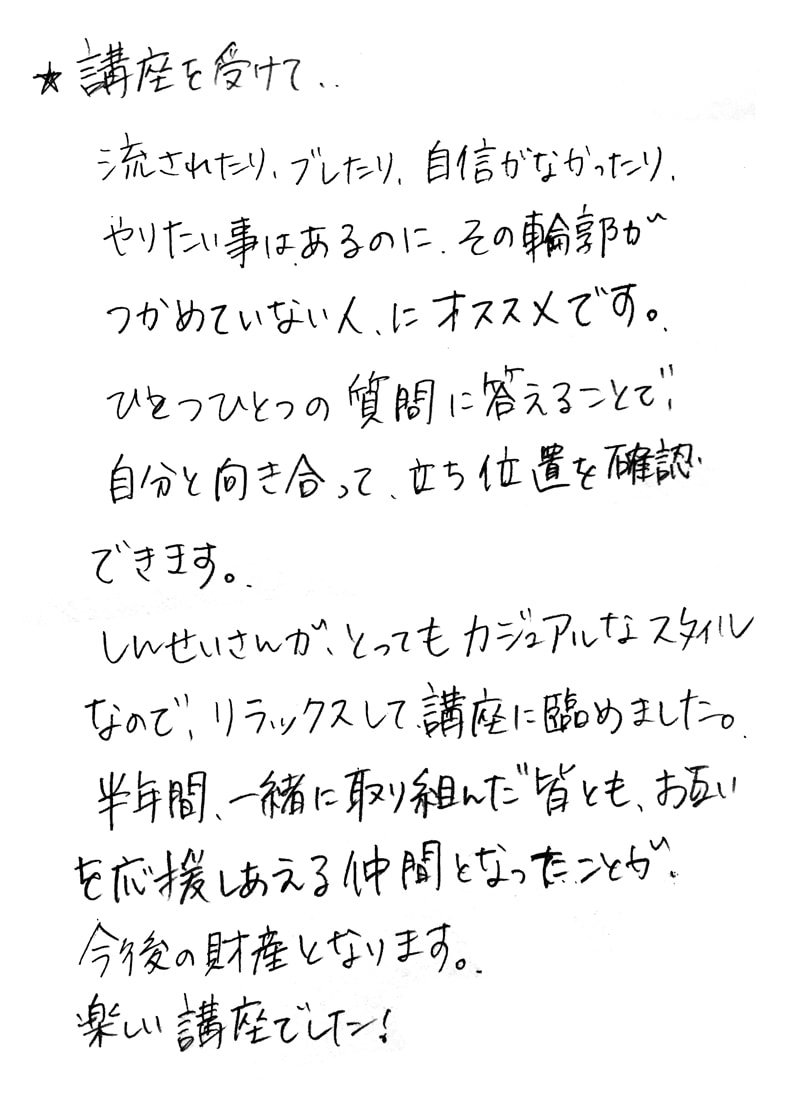 ★講座を受けて..
流されたり、ブレたり、自信がなかったり、
やりたい事は、あるのに、その輪郭が
つかめていない人、にオススメです。
ひとつひとつの質問に答えることで、
自分と向き合って、立ち位置を確認
できます。
しんせいさんが、とってもカジュアルなスタイル
なので、リラックスして、講座に臨めました。
半年間、一緒に取り組んだ皆とも、お互い
を応援しあえる仲間となったことが、
今後の財産となります。
楽しい講座でした!